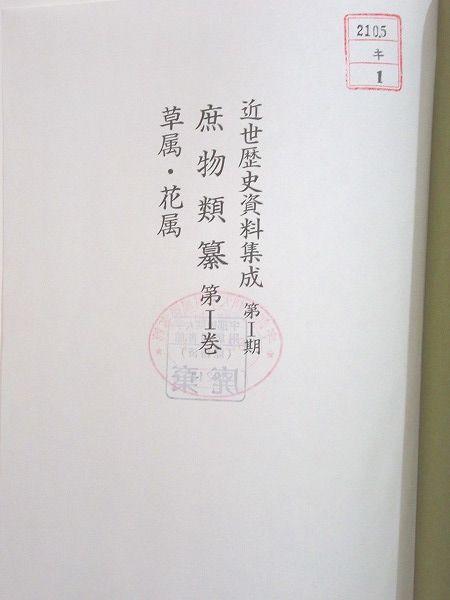 近世歴史資料集成 第Ⅰ期
庶物類纂 第Ⅰ巻
草属・花属
210.5
キ
1
廃棄